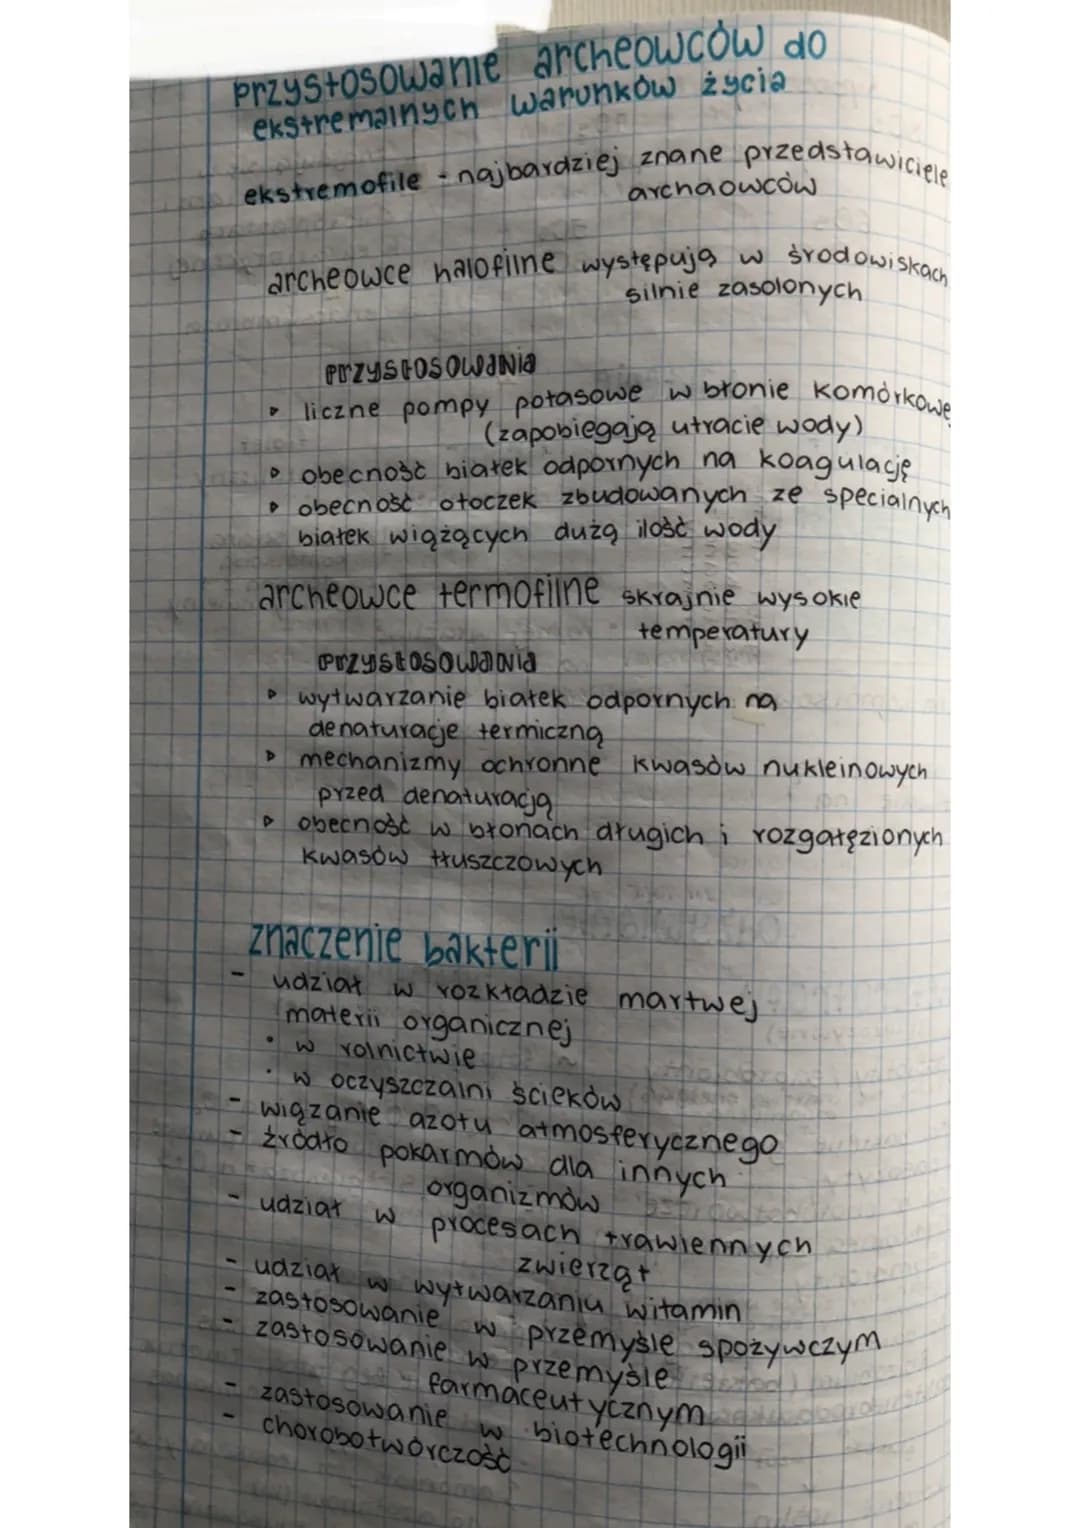 przystosowanie archeowców do
ekstremalnych warunków życia
ekstremofile - najbardziej znane przedstawiciele
archaowców
archeowce halofilne występują w środowiskach
silnie zasolonych
przystosowania
▹ liczne pompy potasowe w błonie komórkowe
(zapobiegają utracie wody)
▹ obecność białek odpornych na koagulację
▹ obecność otoczek zbudowanych ze specialnych
białek wiążących dużą ilość wody
archeowce termofilne skrajnie wysokie
temperatury
przystosowania
▹ wytwarzanie białek odpornych na
denaturacje termiczną
▹ mechanizmy ochronne kwasów nukleinowych
przed denaturacją
▹ obecność w błonach długich i rozgałęzionych
kwasów tłuszczowych
znaczenie bakterii
- udział w rozkładzie martwej
materii organicznej
• w rolnictwie
• w oczyszczalni ścieków
- wiązanie azotu atmosferycznego
- źródło pokarmów dla innych
organizmów
- udział w procesach trawiennych
zwierząt
- udział w wytwarzaniu witamin
- zastosowanie w przemyśle spożywczym
- zastosowanie w przemyśle
farmaceutycznym
- zastosowanie w biotechnologii
- chorobotwórczość